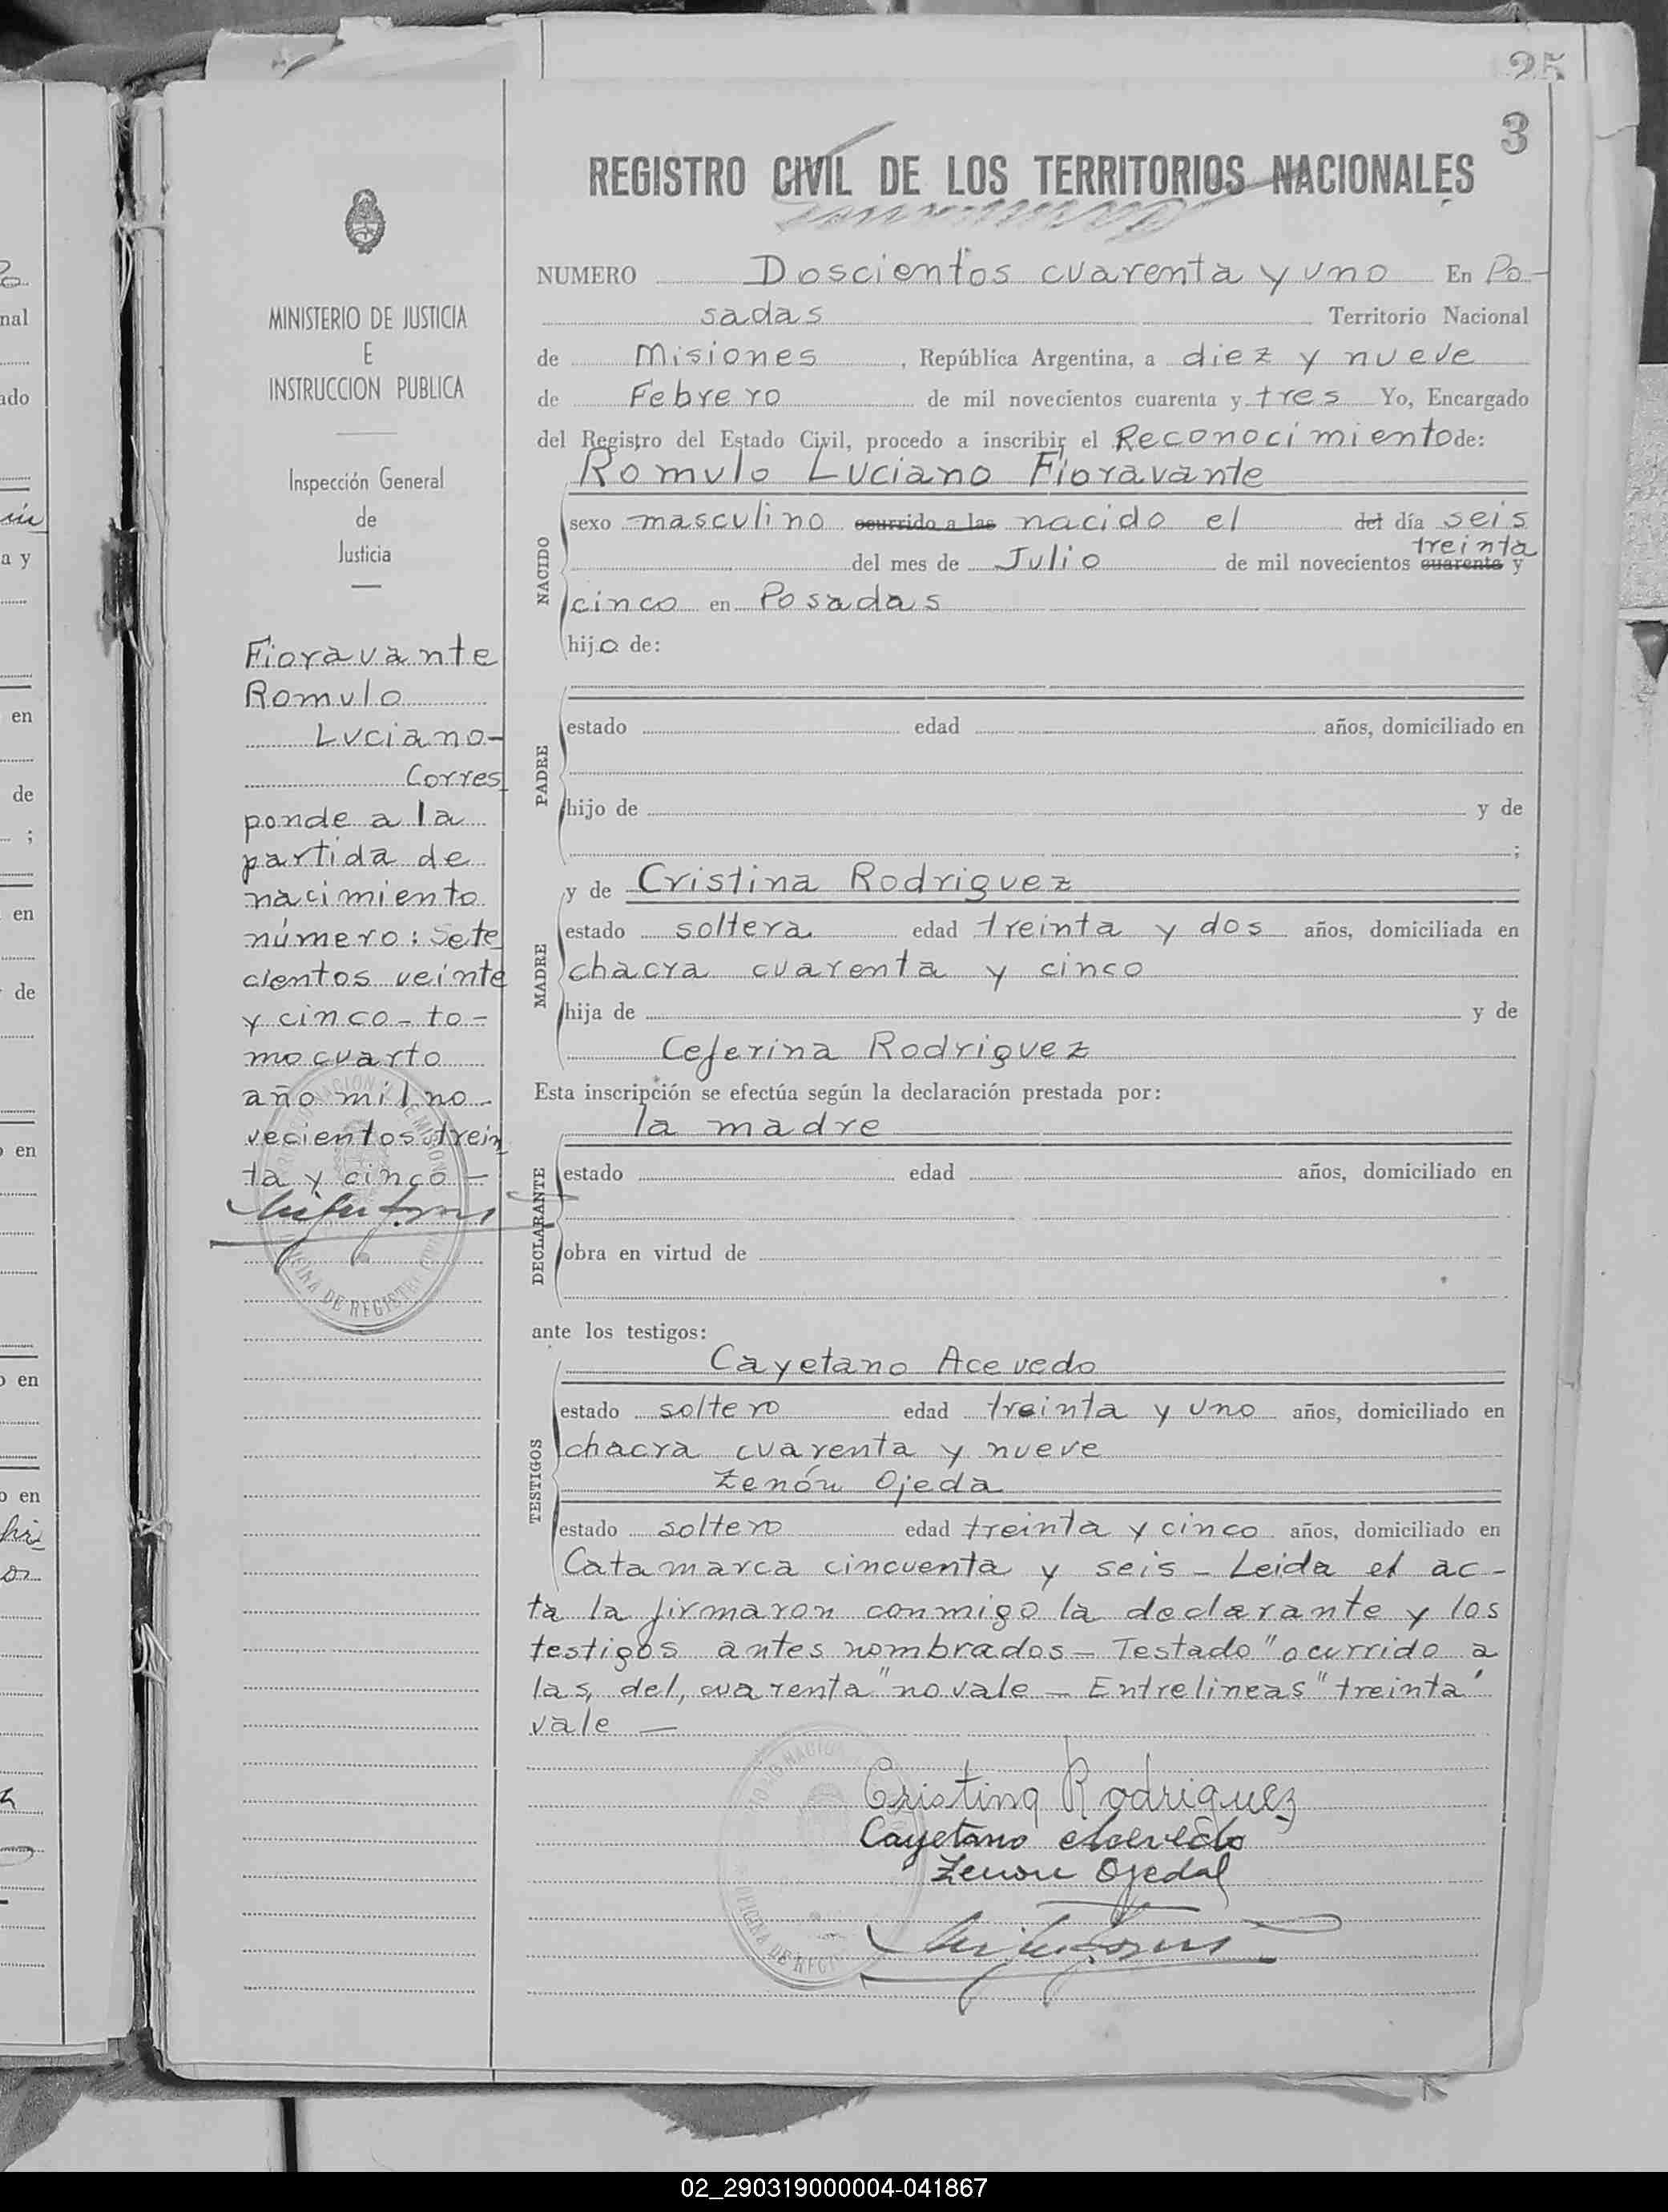 25
3
REGISTRO CIVIL DE LOS TERRITORIOS NACIONALES
NUMERO Doscientos cuarenta y uno En Po-
sadas Territorio Nacional
de Misiones, República Argentina, a diez y nueve
de Febrero de mil novecientos cuarenta y tres Yo, Encargado
del Registro del Estado Civil, procedo a inscribir el Reconocimiento de:
Romulo Luciano Fioravante
NACIDO
sexo masculino ocurrido a las nacido el del día seis
treinta
del mes de Julio de mil novecientos cuarenta y
cinco en Posadas
hijo de:
PADRE
estado edad años, domiciliado en
hijo de y de
;
MADRE
y de Cristina Rodriguez
estado soltera edad treinta y dos años, domiciliada en
chacra cuarenta y cinco
hija de y de
Ceferina Rodriguez
Esta inscripción se efectúa según la declaración prestada por:
la madre
DECLARANTE
estado edad años, domiciliado en
obra en virtud de
ante los testigos:
TESTIGOS
Cayetano Acevedo
estado soltero edad treinta y uno años, domiciliado en
chacra cuarenta y nueve
Zenón Ojeda
estado soltero edad treinta y cinco años, domiciliado en
Catamarca cincuenta y seis - Leida el ac-
ta la firmaron conmigo la declarante y los
testigos antes nombrados - Testado "ocurrido a
las, del, cuarenta" no vale - Entrelineas "treinta"
vale -
Cristina Rodriguez
Cayetano Acevedo
Zenon Ojeda
MINISTERIO DE JUSTICIA
E
INSTRUCCION PUBLICA
Inspección General
de
Justicia
Fioravante
Romulo
Luciano-
Corres
ponde a la
partida de
nacimiento
número: Sete
cientos veinte
y cinco - to-
mo cuarto
año mil no-
vecientos trein
ta y cinco -
OFICINA DE REGISTRO
02_290319000004-041867